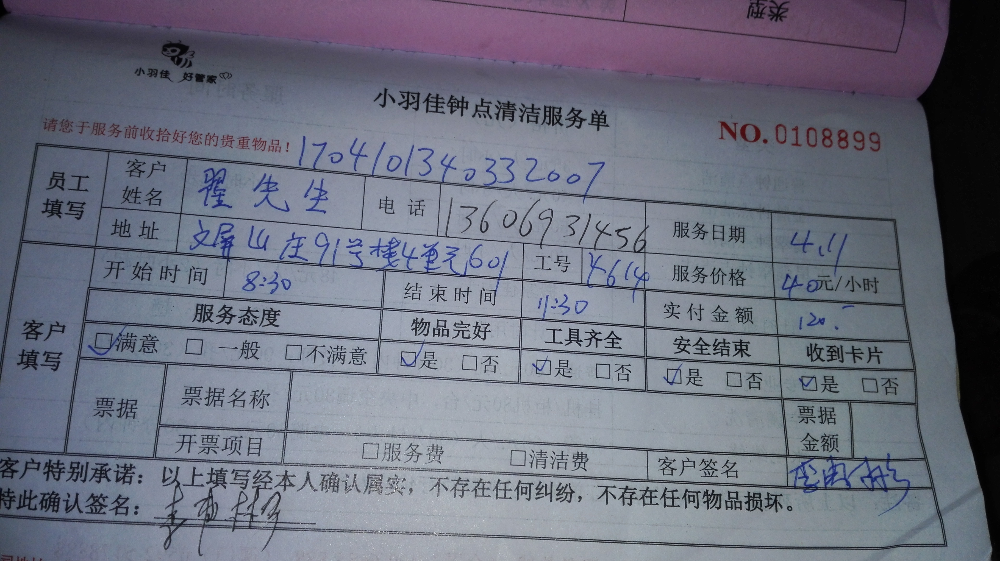 类型
小羽佳 好管家
小羽佳钟点清洁服务单
NO.0108899
请您于服务前收拾好您的贵重物品！
1704101340332007
员工填写 客户姓名 翟先生 电话 13606931456 服务日期 4.11
地址 文屏山庄91号楼4单元601 工号 4614 服务价格 40元/小时
客户填写 开始时间 8:30 结束时间 11:30 实付金额 120.-
服务态度 物品完好 工具齐全 安全结束 收到卡片
☑满意 □一般 □不满意 ☑是 □否 ☑是 □否 ☑是 □否 ☑是 □否
票据 票据名称 票据金额
开票项目 □服务费 □清洁费 客户签名
客户特别承诺：以上填写经本人确认属实，不存在任何纠纷，不存在任何物品损坏。
特此确认签名：